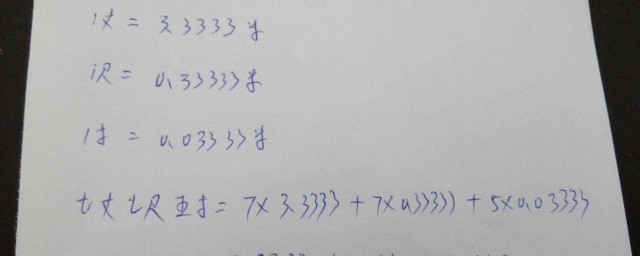 1丈 = 3.3333米
1尺 = 0.33333米
1寸 = 0.03333米
七丈七尺五寸 = 7×3.3333 + 7×0.33333 + 5×0.03333